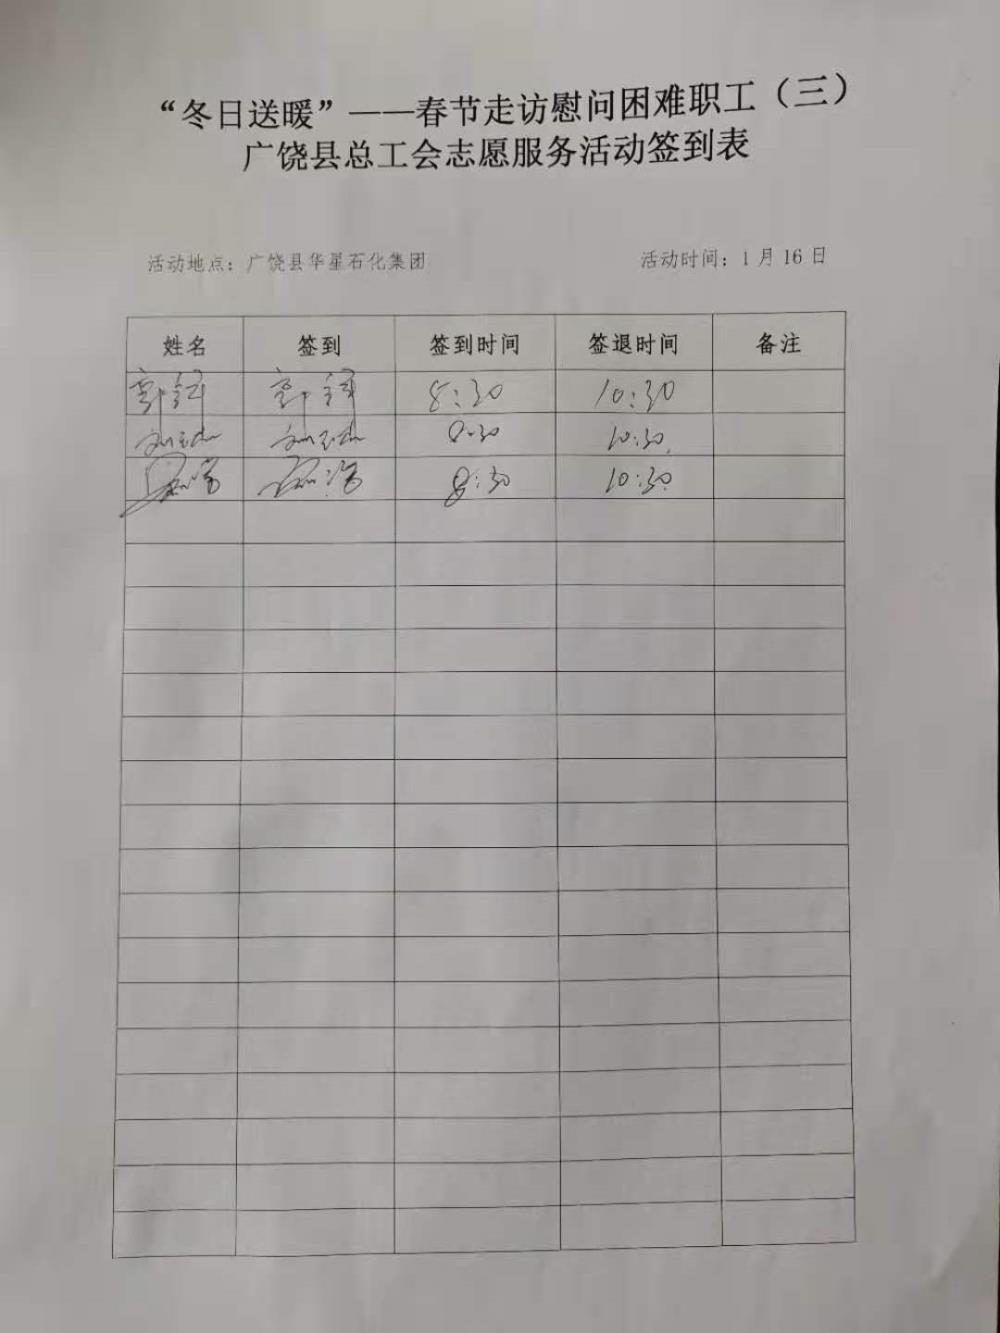 “冬日送暖”——春节走访慰问困难职工（三）
广饶县总工会志愿服务活动签到表
活动地点：广饶县华星石化集团 活动时间：1月16日
姓名 签到 签到时间 签退时间 备注
8:30 10:30
8:30 10:30
8:30 10:30